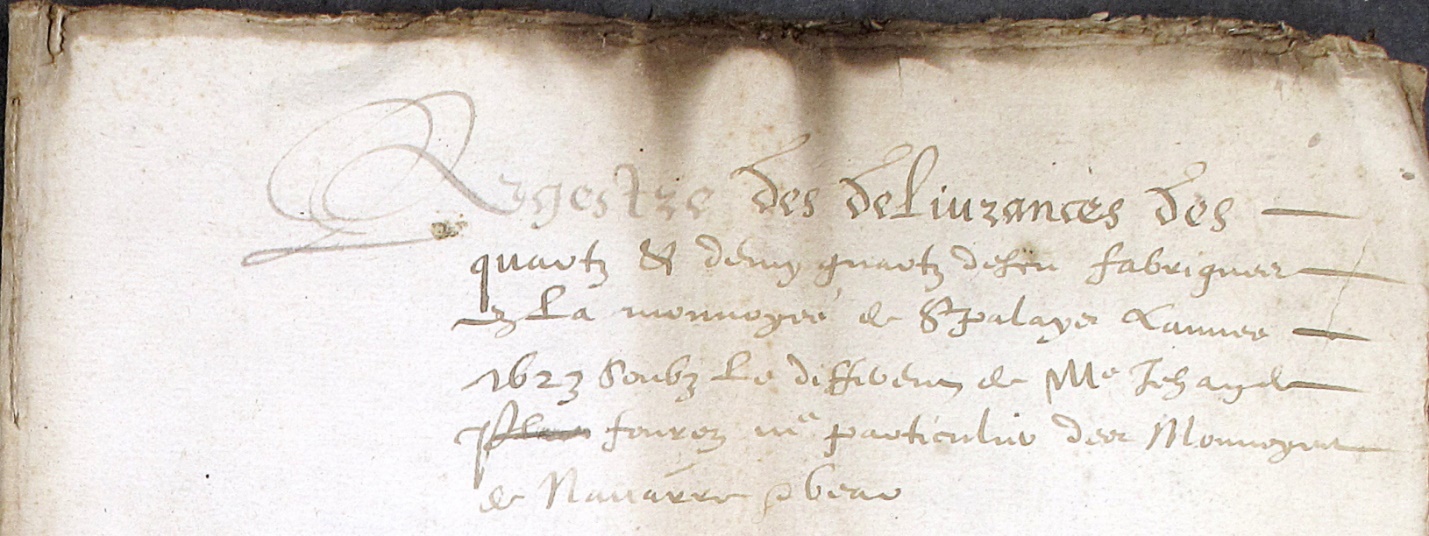 Regestre des deliurances des
quartz & demy quartz descu fabriques
en la monnoye de St palays Lannee
1623 soubz le differem de Me Jehan de
fourez me particulier des Monnoyes
de Nauarre & bear